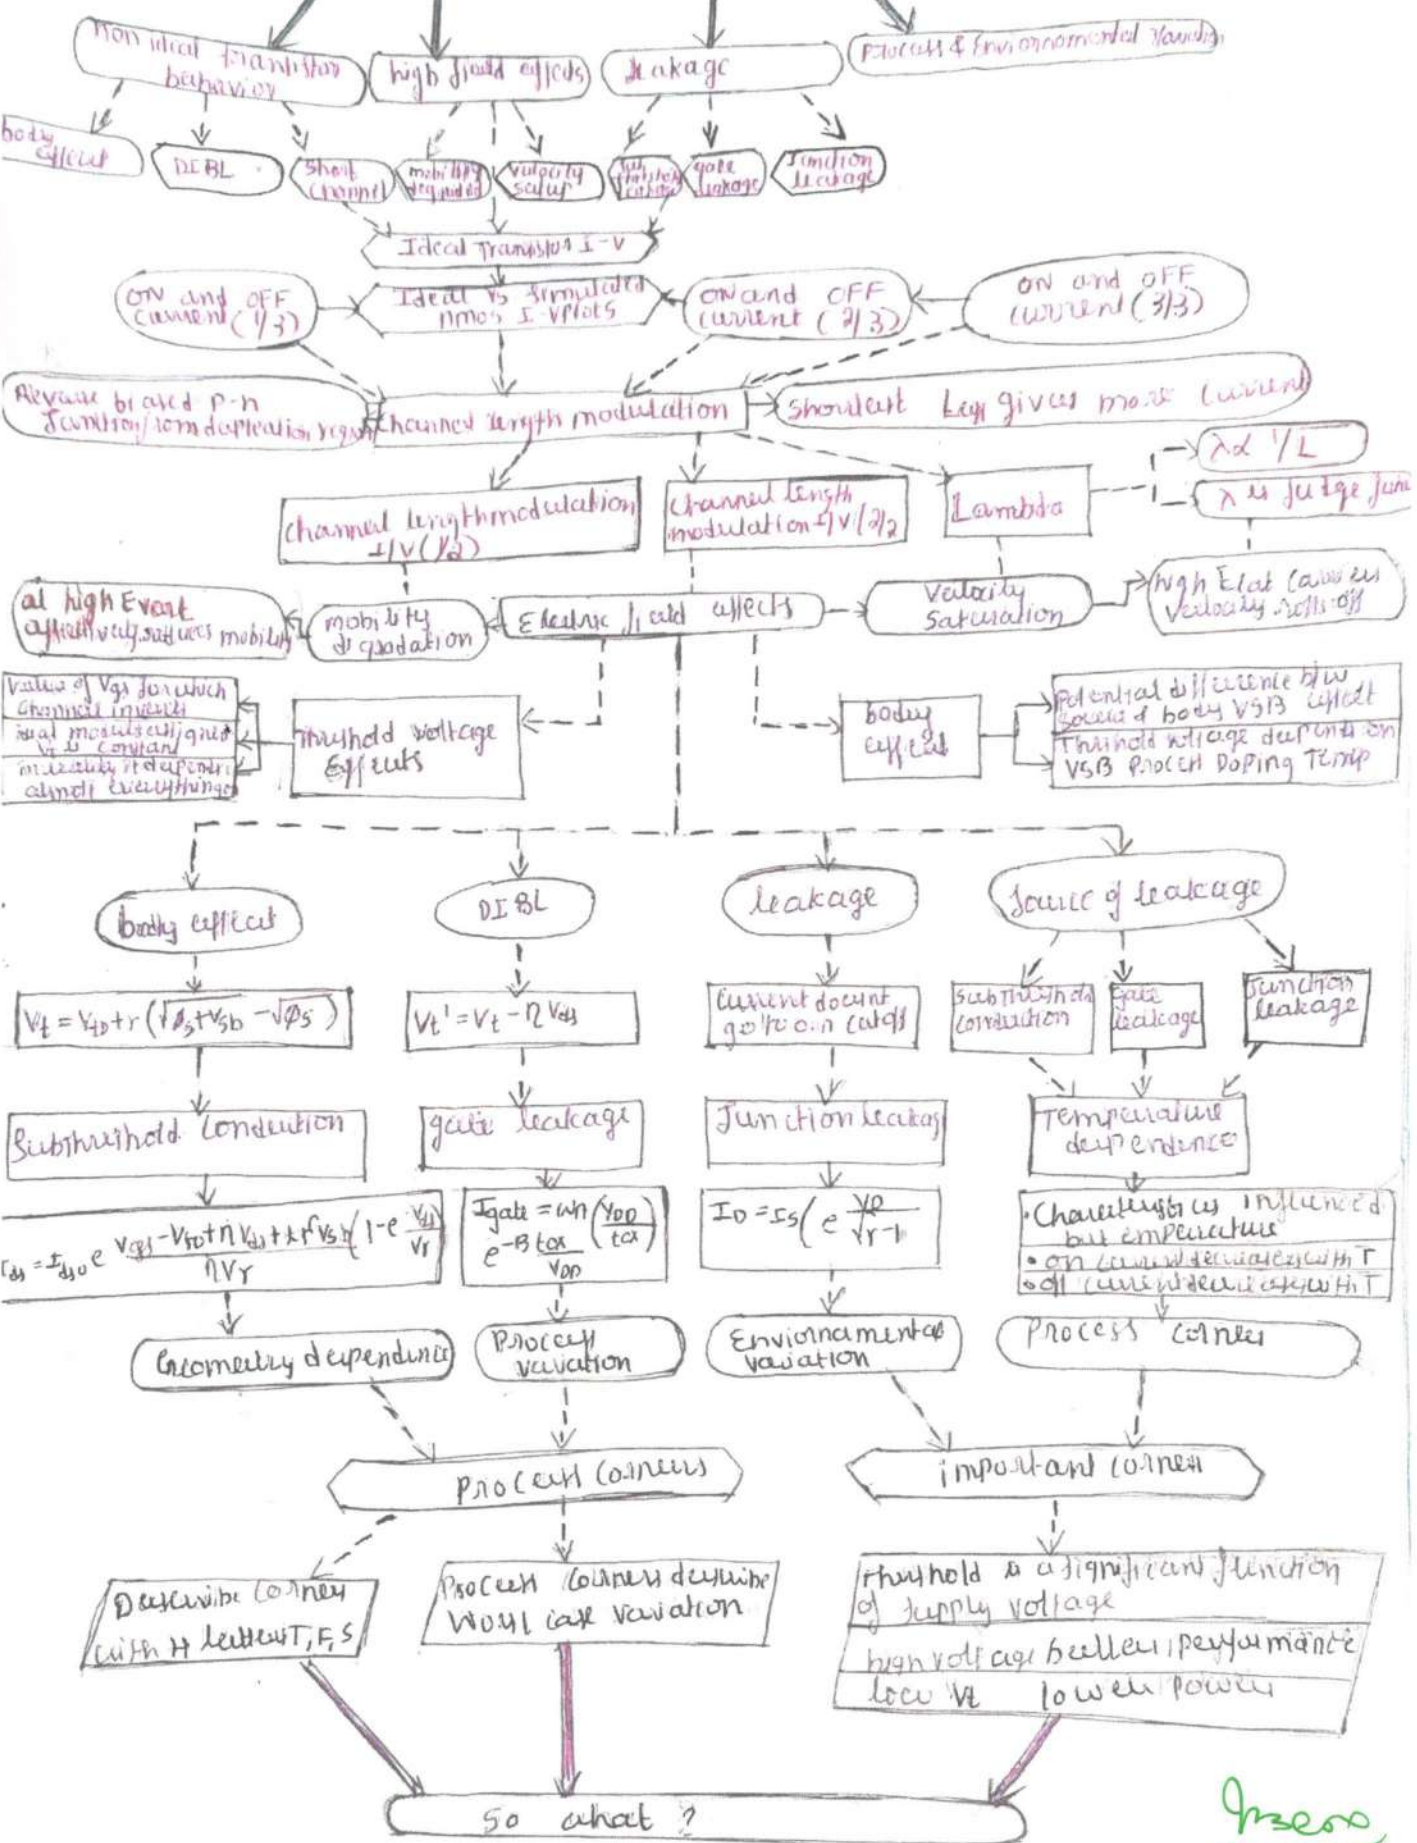 non ideal transistor
behavior
high field effects
leakage
process & Enviornomental Variation
body
effect
DIBL
Short
channel
mobility
degraded
velocity
satur
leakage
gate
leakage
Junction
leakage
Ideal Transistor I-V
ON and OFF
current (1/3)
Ideal vs simulated
nmos I-V plots
ON and OFF
current (2/3)
ON and OFF
current (3/3)
Revease biased P-n
channel length modulation
shortest Leff gives more current
λα 1/L
channel length modulation
I/V (1/2)
channel length
modulation I/V (2/2
Lambda
λ is fudge
at high Evert
effectively reduces mobility
mobility
degradation
Electric field effects
Velocity
Saturation
high Elat carriers
velocity rolls off
Value of Vgs for which
channel inverts
Vt is constant
in reality it depends
almost everything
threshold voltage
Effects
body
effect
Potential difference b/w
source & body VSB effect
Threshold voltage depends on
VSB Process Doping Temp
body effect
DIBL
leakage
source of leakage
Vt = Vt0 + r (√øs+Vsb - √øs)
Vt' = Vt - η Vds
current doesnt
go to 0 in cutoff
subthreshold
conduction
gate
leakage
Junction
leakage
Subthreshold Conduction
gate leakage
Junction leakag
Temperature
dependence
Igate = wn (VDD/tox)
e^-B tox/VDD
ID = Is( e VD/√r-1
• Characteristics influenced
but temperature
• on current decreases with T
• off current decreases with T
Geometry dependence
Process
variation
Enviornamental
variation
Process corner
Process corners
important corner
Describe corner
with 4 letters T, F, S
Process corners describe
worst case variation
threshold is a significant function
of supply voltage
high voltage better performance
low Vt lower power
so what ?